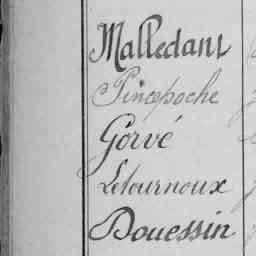 Malledant
Pincepoche
Gorvé
Letournoux
Douessin